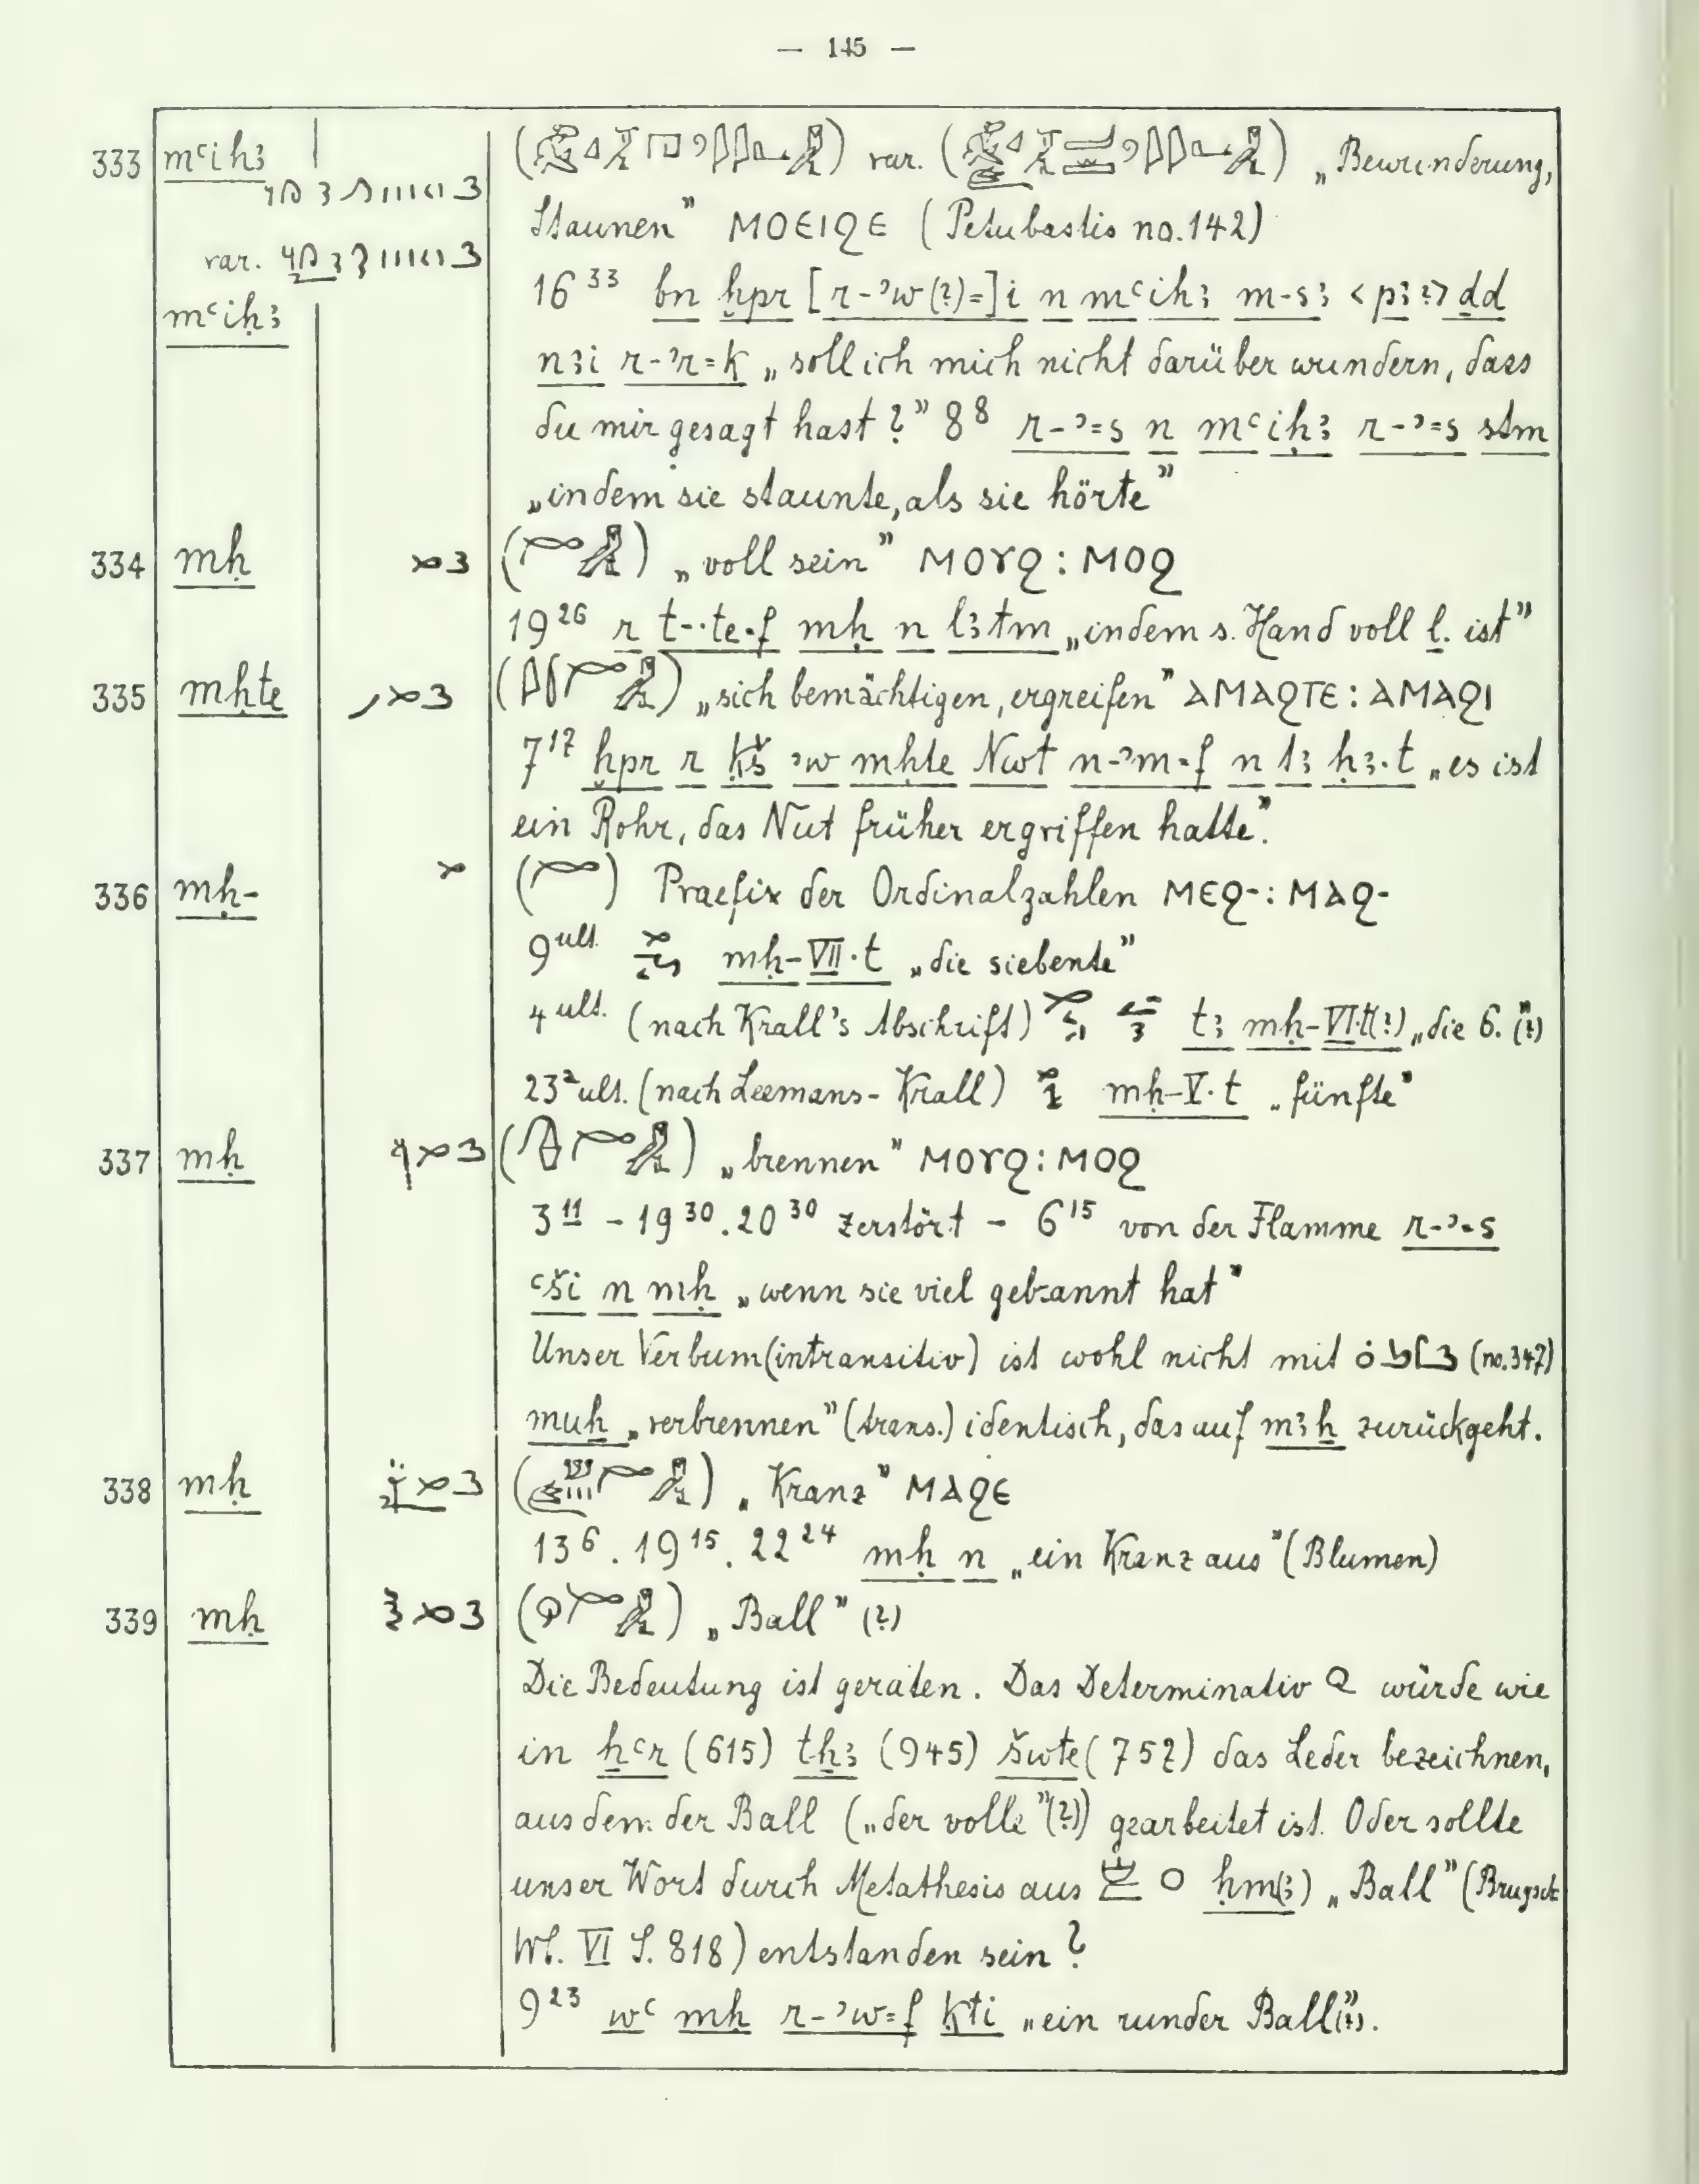 — 145 —
333 mꜥihꜣ „Bewunderung,
var. Staunen” ⲘⲞⲈⲒϨⲈ (Petubastis no. 142)
mꜥiḥꜣ 16³³ bn ḫpr [r-ʾw(?)=]i n mꜥihꜣ m-sꜣ <pꜣ ?> ḏd
nꜣi r-ʾr=k „soll ich mich nicht darüber wundern, dass
du mir gesagt hast?” 8⁸ r-ʾ=s n mꜥiḥꜣ r-ʾ=s stm
„indem sie staunte, als sie hörte”
334 mḥ „voll sein” ⲘⲞⲨϨ : ⲘⲞϨ
19²⁶ r t-·te·f mḥ n lꜣtm „indem s. Hand voll l. ist”
335 mḥte „sich bemächtigen, ergreifen” ⲀⲘⲀϨⲦⲈ : ⲀⲘⲀϨⲒ
7¹⁷ ḫpr r ḳš ʾw mḥte Nwt n-ʾm=f n tꜣ ḥꜣ·t „es ist
ein Rohr, das Nut früher ergriffen hatte”.
336 mḥ- Praefix der Ordinalzahlen ⲘⲈϨ- : ⲘⲀϨ-
9 ult. mḥ-VII·t „die siebente”
4 ult. (nach Krall's Abschrift) tꜣ mḥ-VI·t(?) „die 6.” (?)
23ᵃ ult. (nach Leemans-Krall) mḥ-V·t „fünfte”
337 mḥ „brennen” ⲘⲞⲨϨ : ⲘⲞϨ
3¹¹ - 19³⁰. 20³⁰ zerstört - 6¹⁵ von der Flamme r-ʾ=s
ꜥši n mḥ „wenn sie viel gebrannt hat”
Unser Verbum (intransitiv) ist wohl nicht mit (no. 347)
muẖ „verbrennen” (trans.) identisch, das auf mꜣẖ zurückgeht.
338 mḥ „Kranz” ⲘⲀϨⲈ
13⁶. 19¹⁵. 22²⁴ mḥ n „ein Kranz aus” (Blumen)
339 mḥ „Ball” (?)
Die Bedeutung ist geraten. Das Determinativ würde wie
in ẖꜥr (615) tḥꜣ (945) šwte (757) das Leder bezeichnen,
aus dem der Ball („der volle” (?)) gearbeitet ist. Oder sollte
unser Wort durch Metathesis aus ḥm(ꜣ) „Ball” (Brugsch
Wb. VI S. 818) entstanden sein?
9²³ wꜥ mḥ r-ʾw=f ḳti „ein runder Ball” (?).